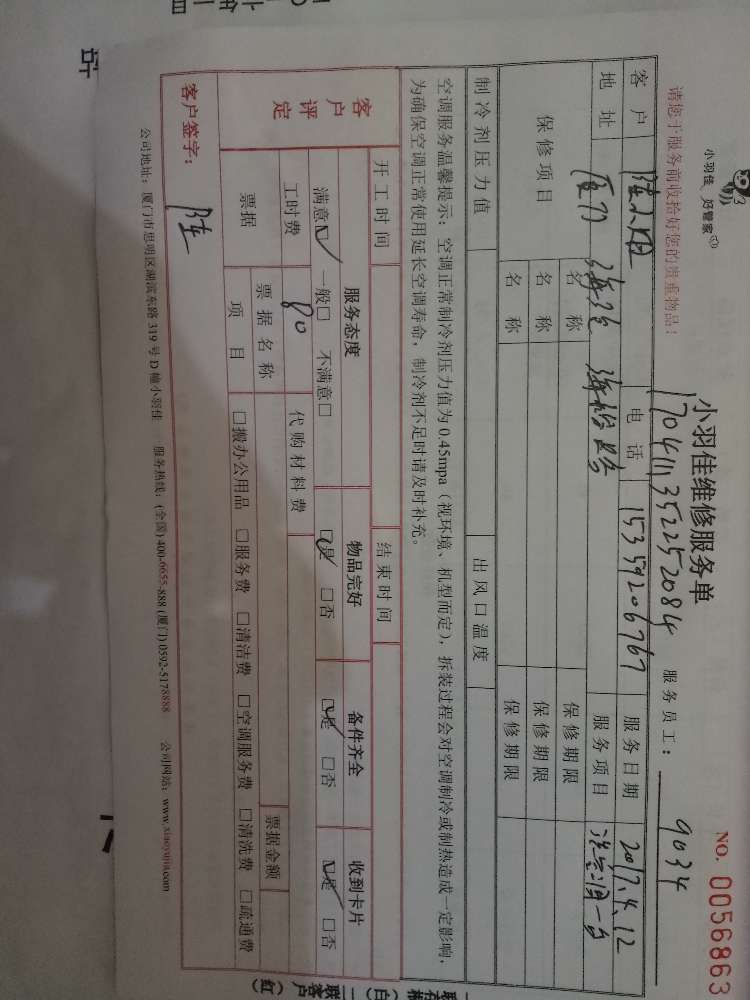 小羽佳 好管家
小羽佳维修服务单
NO. 0056863
170411352252084
服务员工: 9034
请您于服务前收拾好您的贵重物品!
客户 电话 15359206767 服务日期 2017.4.12
地址 厦门 服务项目 洗空调一台
保修项目 名称 保修期限
名称 保修期限
名称 保修期限
制冷剂压力值 出风口温度
空调服务温馨提示: 空调正常制冷剂压力值为0.45mpa (视环境、机型而定), 拆装过程会对空调制冷或制热造成一定影响,
为确保空调正常使用延长空调寿命, 制冷剂不足时请及时补充。
开工时间 结束时间
客户评定 服务态度 物品完好 备件齐全 收到卡片
满意☑ 一般□ 不满意□ ☑是 □否 ☑是 □否 ☑是 □否
工时费 80 代购材料费
票据 票据名称 票据金额
项目 □搬办公用品 □服务费 □清洁费 □空调服务费 □清洗费 □疏通费
客户签字: 陆
公司地址: 厦门市思明区湖滨东路319号D幢小羽佳 服务热线: (全国)400-6655-888 (厦门)0592-5178888 公司网站: www.xiaoyujia.com